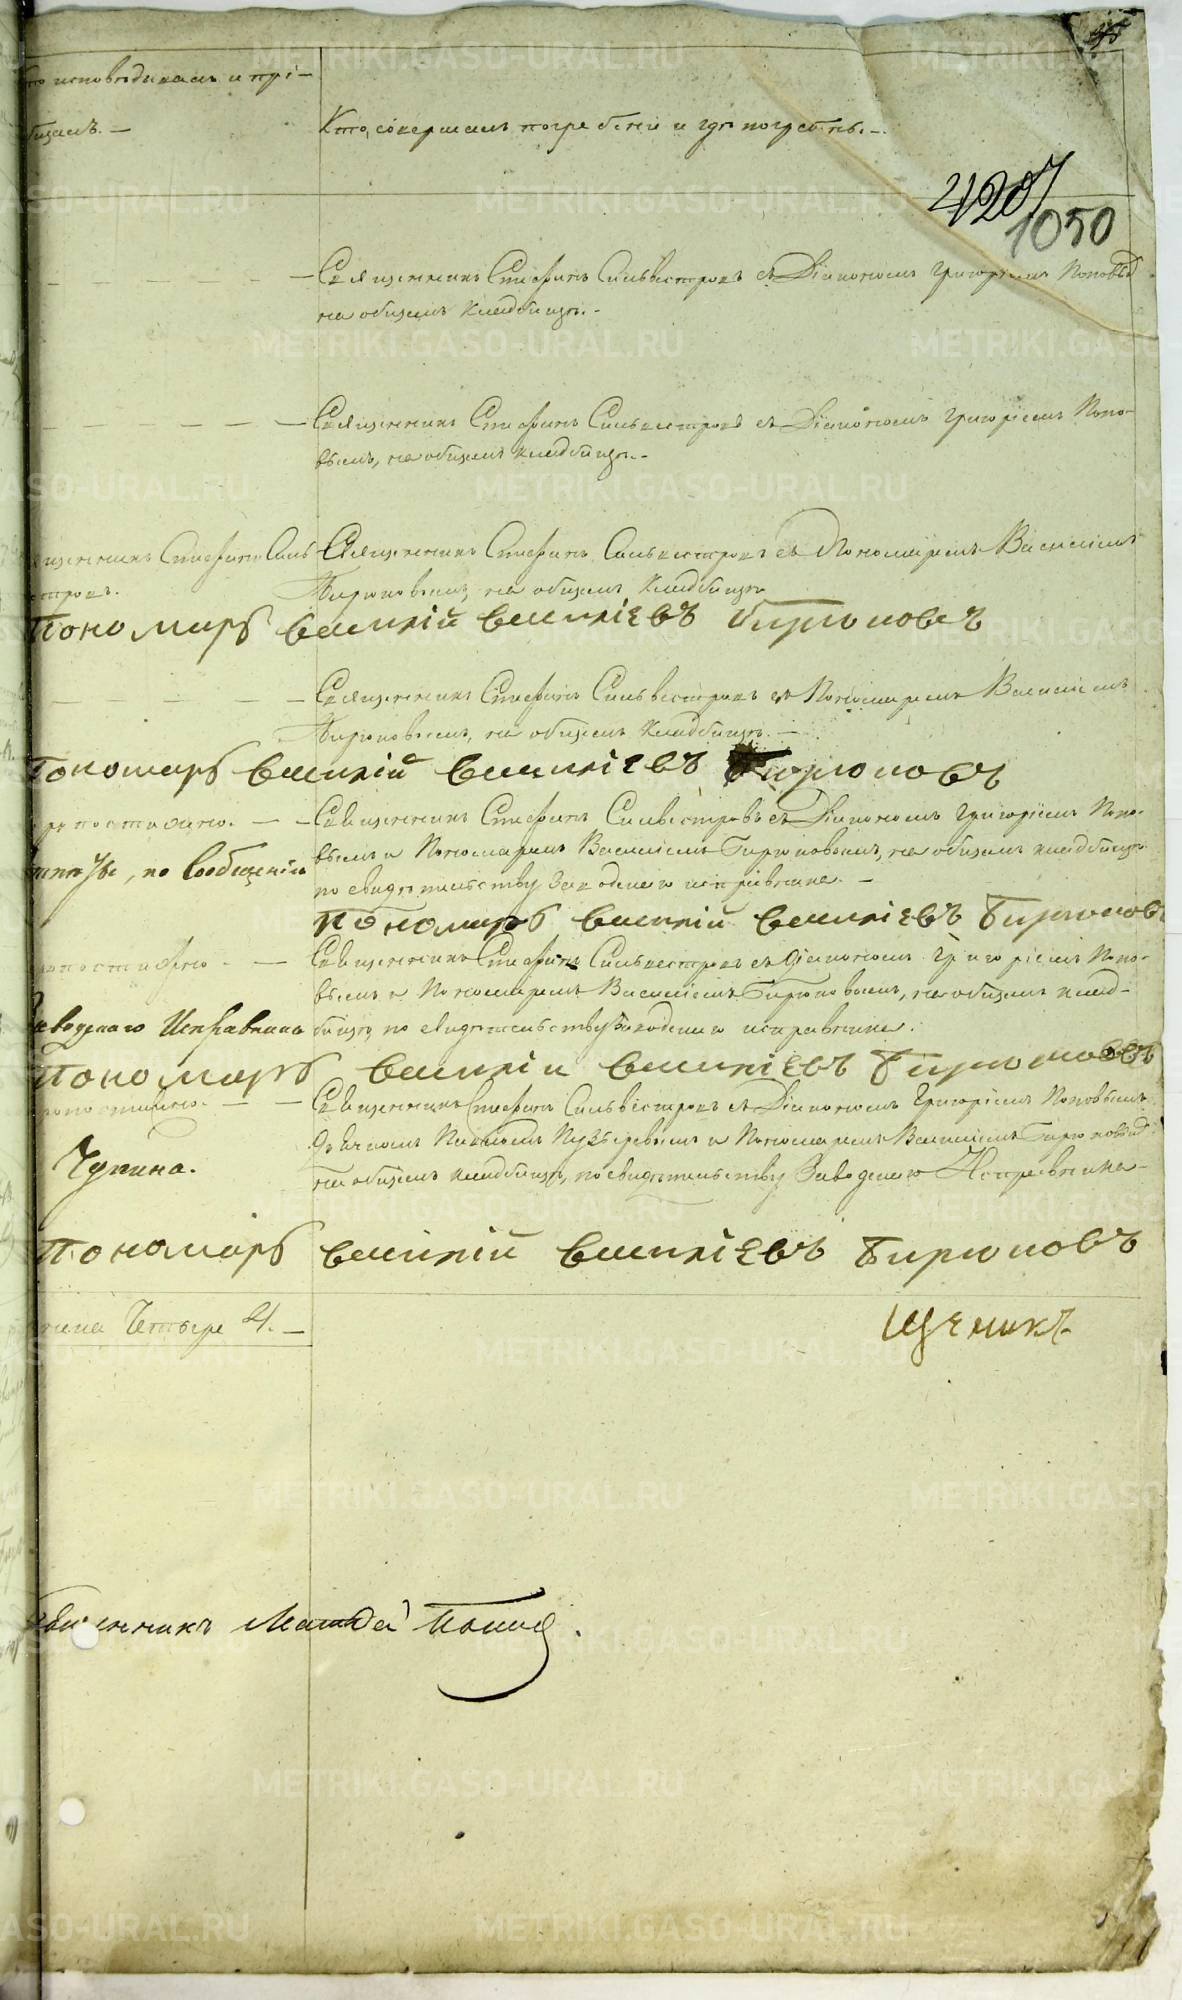 исповѣдывалъ и прі-
общалъ. —
Кто совершалъ погребеніе и гдѣ погребены. —
4207
1050
— Священникъ Стефанъ Сильвестровъ съ Діакономъ Григоріемъ Поповым
на общемъ кладбищѣ. -
— Священникъ Стефанъ Сильвестровъ съ Діакономъ Григоріемъ Попо-
вымъ, на общемъ кладбищѣ. -
Священникъ Стефанъ Силь-
вестровъ.
Священникъ Стефанъ Сильвестровъ съ Пономаремъ Василіемъ
Бирюковымъ, на общемъ кладбищѣ
Пономарь василій василіевъ бирюковъ
— Священникъ Стефанъ Сильвестровъ съ Пономаремъ Василіемъ
Бирюковымъ, на общемъ кладбищѣ. —
Пономарь василій василіевъ Бирюковъ
по сообщенію
Священникъ Стефанъ Сильвестровъ съ Діакономъ Григоріемъ Попо-
вымъ и Пономаремъ Василіемъ Бирюковымъ, на общемъ кладбищѣ
по свидѣтельству Заводскаго исправника. —
Пономарь василій василіевъ Бирюковъ
Заводскаго Исправника
Священникъ Стефанъ Сильвестровъ съ Діакономъ Григоріемъ Попо-
вымъ и Пономаремъ Василіемъ Бирюковымъ, на общемъ клад-
бищѣ, по свидѣтельству Заводскаго исправника.
Пономарь василіи василіевъ Бирюковъ
Чупина.
Священникъ Стефанъ Сильвестровъ съ Діакономъ Григоріемъ Поповымъ
Дьячкомъ Пузыревымъ и Пономаремъ Василіемъ Бирюковым
на общемъ кладбищѣ, по свидѣтельству Заводскаго Исправника
Пономарь василій василіевъ Бирюковъ
Четыре 4. —
Священникъ Попов.
METRIKI.GASO-URAL.RU